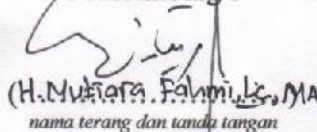 (H. Mutiara Fahmi, Lc, MA
nama terang dan tanda tangan